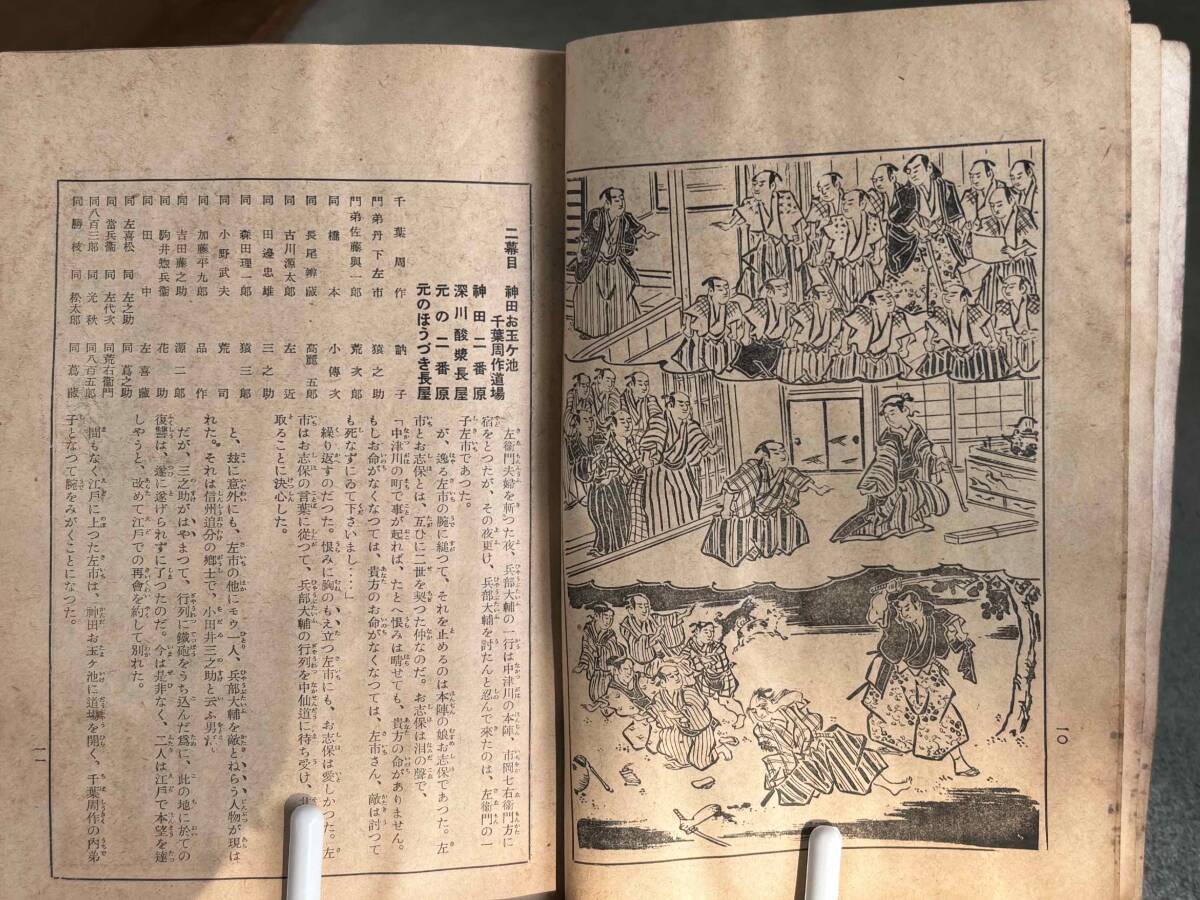 一〇
二幕目 神田お玉ケ池
千葉周作道場
神田二番原
深川酸漿長屋
元の二番原
元のほうづき長屋
千葉周作 訥子
門弟丹下左市 猿之助
門弟佐藤與一郎 荒次郎
同 橋本 小傳次
同 長尾 高麗五郎
同 古川源太郎 左近
同 田邊忠雄 三之助
同 森田理一郎 猿三郎
同 小野武夫 荒司
同 加藤平九郎 品作
同 吉田藤之助 源二郎
同 駒井惣兵衞 花助
同 田中 左喜藏
同 左喜松 同 左之助 同 蔦之助
同 當兵衞 同 左代次 同 荒右衞門
同 八百三郎 同 光秋 同 八百五郎
同 勝枝 同 松太郎 同 蔦藏
左衞門夫婦を斬つた夜、兵部大輔の一行は中津川の本陣、市岡七右衞門方に
宿をとつたが、その夜更け、兵部大輔を討たんと忍んで來たのは、左衞門の一
子左市であつた。
が、逸る左市の腕に縋つて、それを止めるのは本陣の娘お志保であつた。左
市とお志保とは、互ひに二世を契つた仲なのだ。お志保は泪の聲で、
「中津川の町で事が起れば、たとへ恨みは晴せても、貴方の命がありません。
もしお命がなくなつては、貴方のお命がなくなつては、左市さん、敵は討つて
も死なずにゐて下さいまし……」
繰り返すのだつた。恨みに胸のもえ立つ左市にも、お志保は愛しかつた。左
市はお志保の言葉に從つて、兵部大輔の行列を中仙道に待ち受け、
取ることに決心した。
と、玆に意外にも、左市の他にモウ一人、兵部大輔を敵とねらう人物が現は
れた。それは信州追分の鄕士で、小田井三之助と云ふ男だ
だが、三之助がはやまつて、行列に鐵砲をうち込んだ爲に、此の地に於ての
復讐は、遂に遂げられずに了つたのだ。今は是非なく、二人は江戶で本望を達
しやうと、改めて江戶での再會を約して別れた。
間もなく江戶に上つた左市は、神田お玉ケ池に道場を開く、千葉周作の內弟
子となつて腕をみがくことになつた。
一一